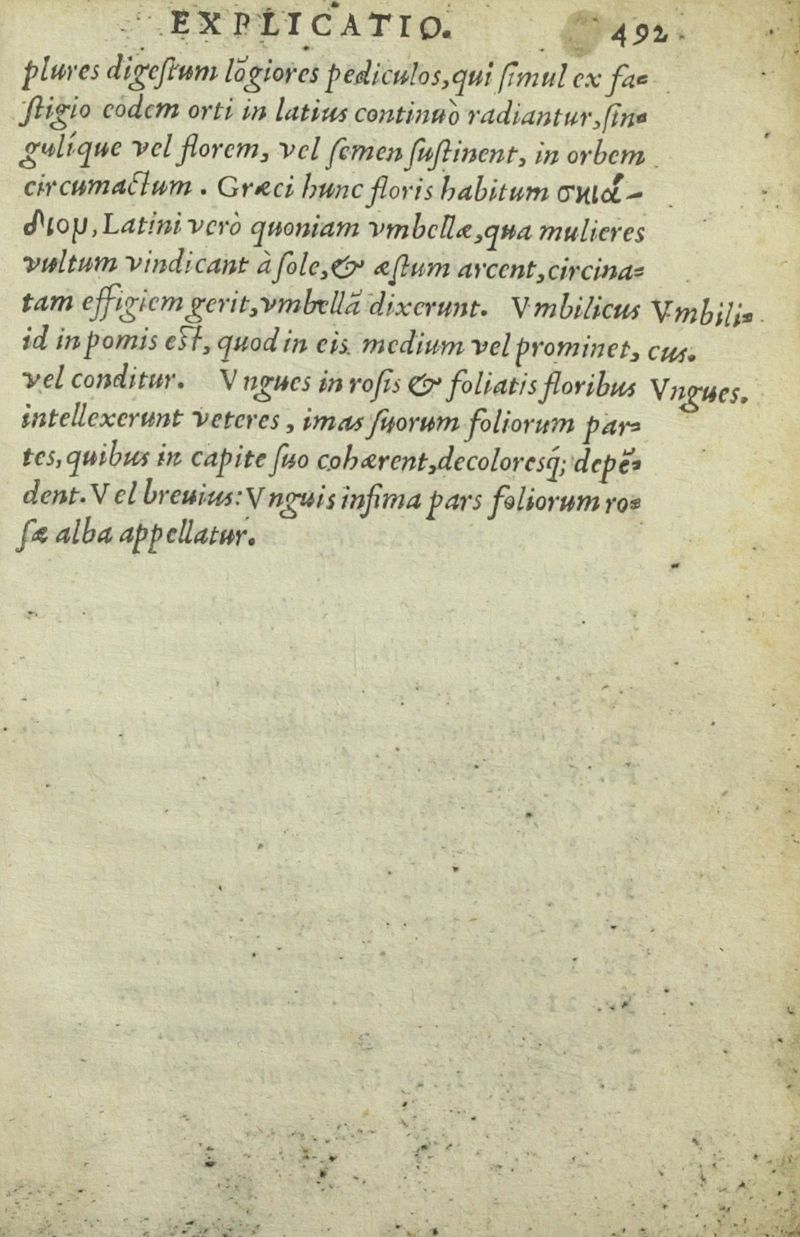 EXPLICATIO. 492.
plures digeſtum lōgiores pediculos, qui ſimul ex fa-
ſtigio eodem orti in latius continuò radiantur, ſin-
gulíque vel florem, vel ſemen ſuſtinent, in orbem
circumactum. Græci hunc floris habitum σκιά-
διομ, Latini verò quoniam vmbellæ, qua mulieres
vultum vindicant à ſole, & æſtum arcent, circina-
tam effigiem gerit, vmbellā dixerunt. Vmbilicus Vmbili-
id in pomis eſt, quod in eis medium vel prominet, cus.
vel conditur. Vngues in roſis & foliatis floribus Vngues.
intellexerunt veteres, imas ſuorum foliorum par-
tes, quibus in capite ſuo cohærent, decoloresq; depē-
dent. Vel breuius: Vnguis infima pars foliorum ro-
ſæ alba appellatur.